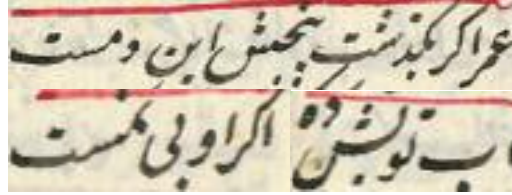 عمر اکر بکذشت بیخش این دمست
آب توبش ده اکر او بی نمست